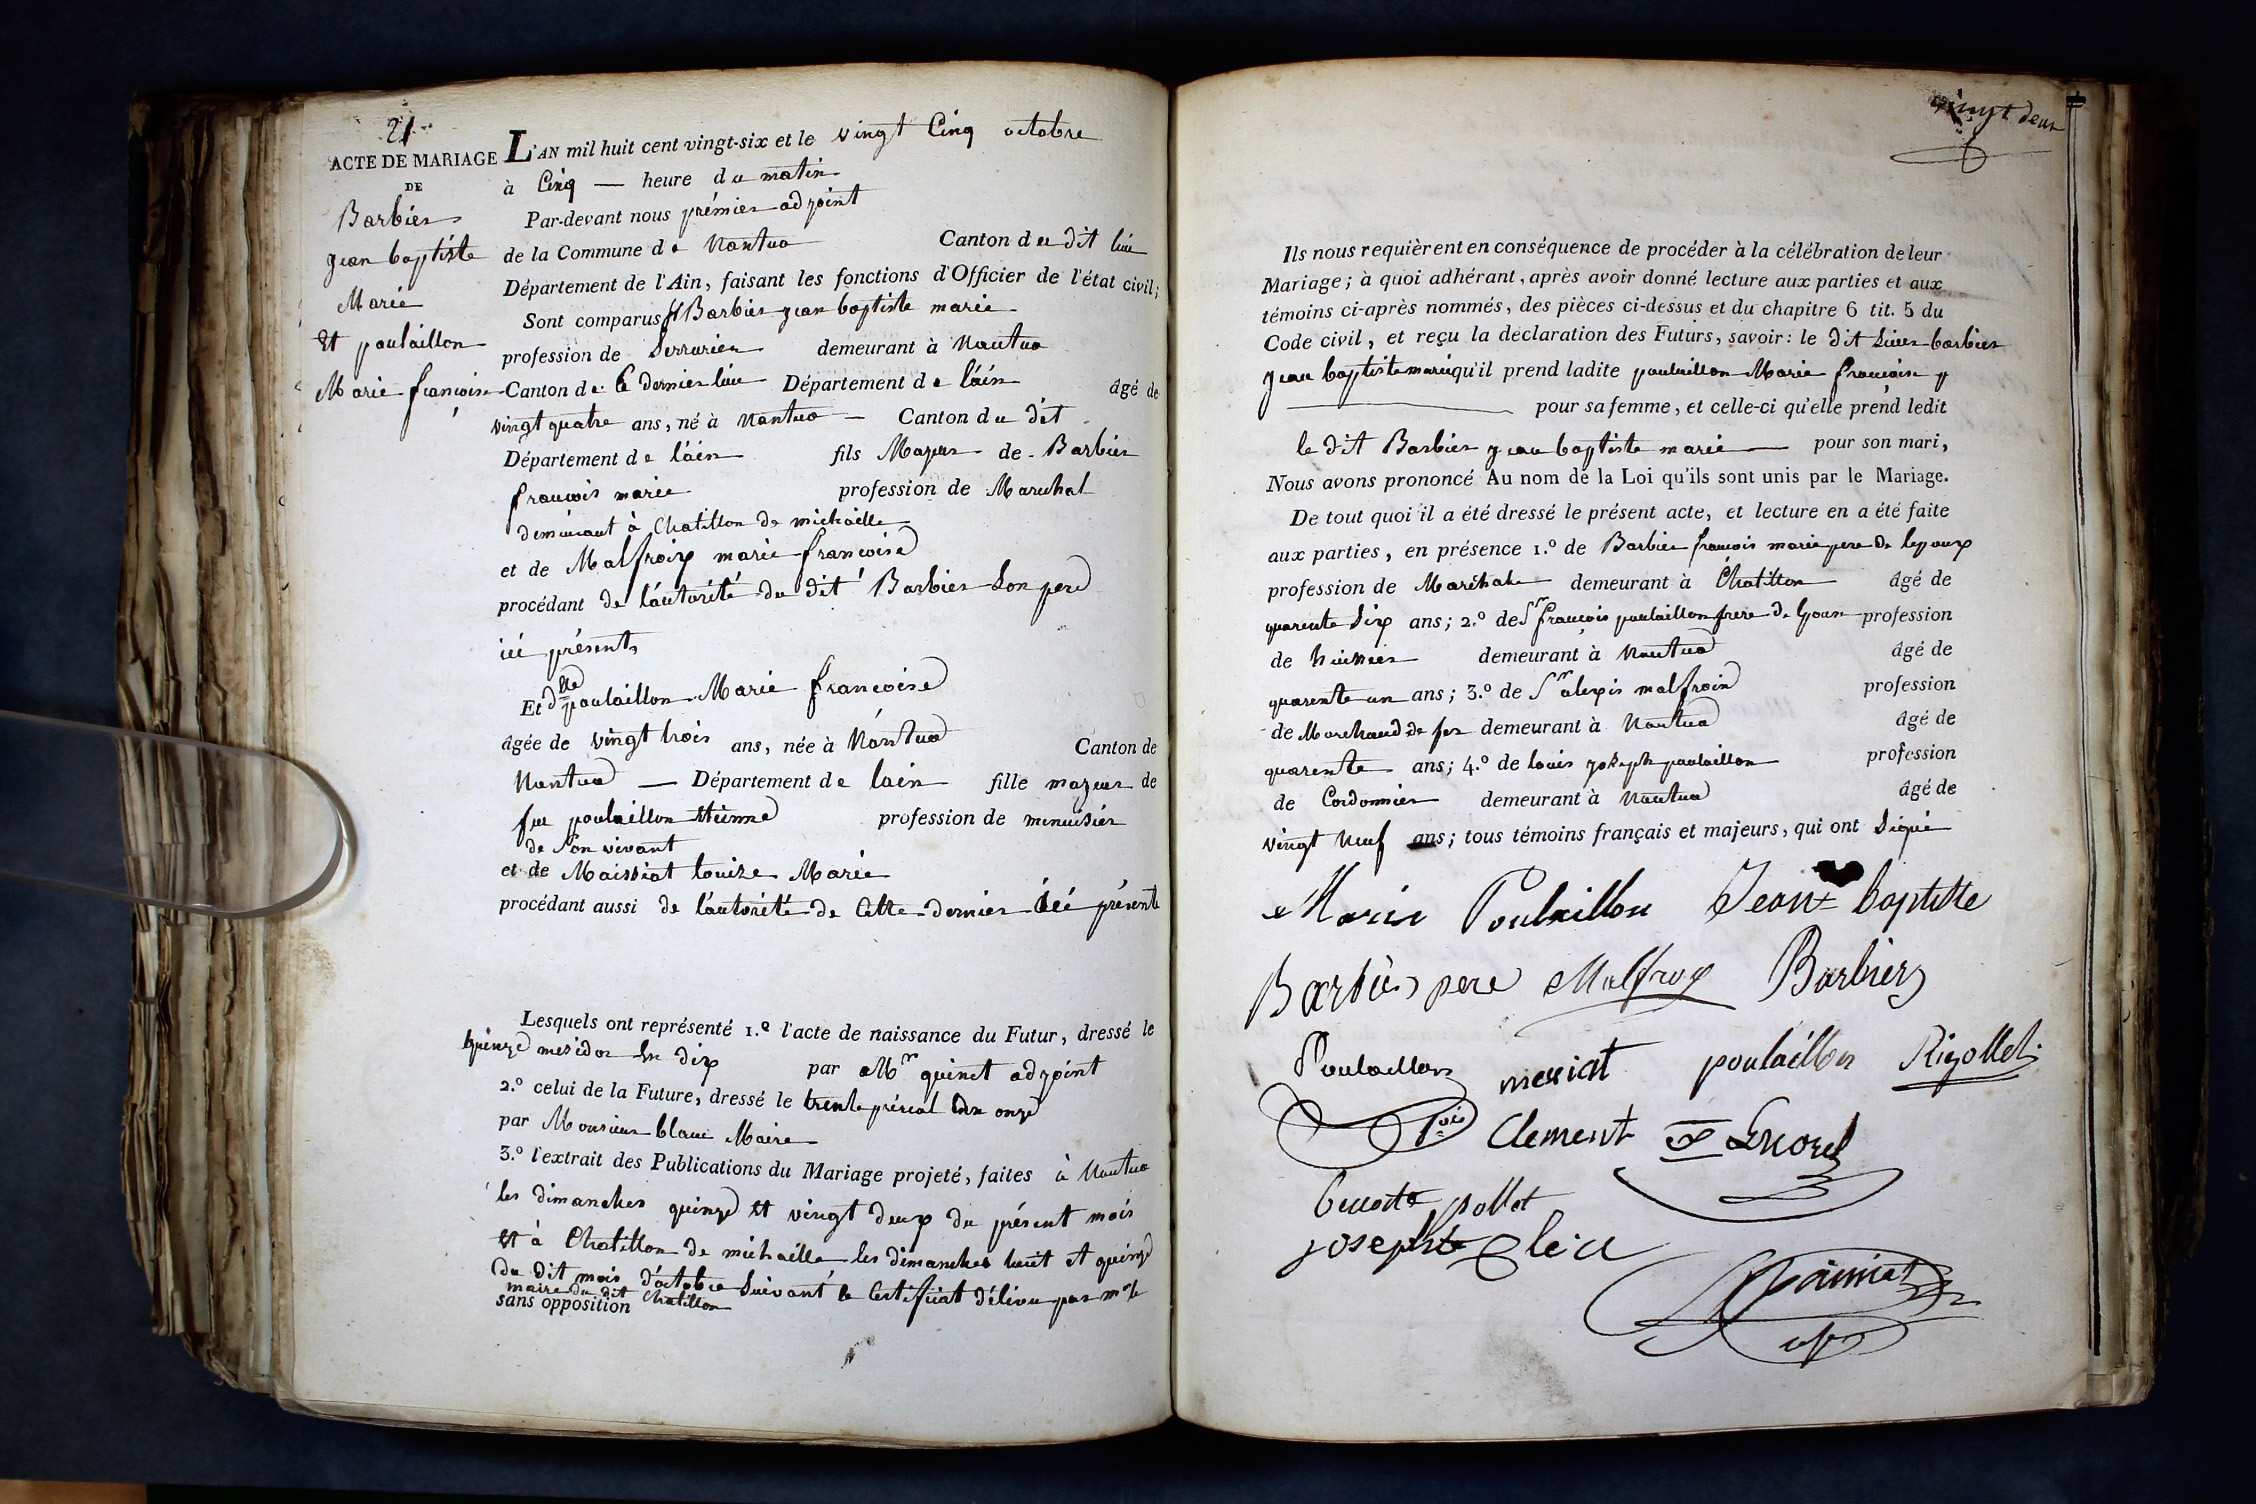 21
ACTE DE MARIAGE
DE
Barbier
jean baptiste
Marie
Et poulaillon
Marie françoise
L'AN mil huit cent vingt-six et le vingt Cinq octobre
à Cinq — heure du matin
Par-devant nous prémier adjoint
de la Commune de Nantua Canton du dit lieu
Département de l'Ain, faisant les fonctions d'Officier de l'état civil;
Sont comparus Sr Barbier jean baptiste marie
profession de Serrurier demeurant à Nantua
Canton de Ce dernier lieu Département de láin âgé de
vingt quatre ans, né à Nantua — Canton du dit
Département de láin fils Majeur de Barbier
françois marie profession de Maréchal
demeurant à Chatillon de michaille
et de Malfroix marie françoise
procédant de l'autorité du dit Barbier Son pere
ici présents
Et dlle poulaillon Marie françoise
âgée de vingt trois ans, née à Nantua Canton de
Nantua — Département de lain fille majeur de
feu poulaillon Etienne profession de menuisier
de Son vivant
et de Maissiat louize Marie
procédant aussi de l'autorité de Cette dernier ici présente
Lesquels ont représenté 1.º l'acte de naissance du Futur, dressé le
quinze mesidor an dix par Mr quinet adjoint
2.º celui de la Future, dressé le trente prérial an onze
par Monsieur blanc Maire
3.º l'extrait des Publications du Mariage projeté, faites à Nantua
les dimanches quinze et vingt deux du présent mois
et à Chatillon de michaille les dimanches huit et quinze
du dit mois d'octobre Suivant le Certificat délivré par mr le
maire du dit Chatillon
sans opposition
vingt deux
Ils nous requièrent en conséquence de procéder à la célébration de leur
Mariage; à quoi adhérant, après avoir donné lecture aux parties et aux
témoins ci-après nommés, des pièces ci-dessus et du chapitre 6 tit. 5 du
Code civil, et reçu la déclaration des Futurs, savoir: le dit Sieur barbier
jean baptiste marie qu'il prend ladite poulaillon Marie françoise
pour sa femme, et celle-ci qu'elle prend ledit
le dit Barbier jean baptiste marie — pour son mari,
Nous avons prononcé Au nom de la Loi qu'ils sont unis par le Mariage.
De tout quoi il a été dressé le présent acte, et lecture en a été faite
aux parties, en présence 1.º de Barbier françois marie pere de lepoux
profession de Maréchal demeurant à Chatillon âgé de
quarente Six ans; 2.º de Sr françois poulaillon frere de lepouse profession
de huissier demeurant à Nantua âgé de
quarente un ans; 3.º de Sr alexis malfroix profession
de Marchand de fer demeurant à Nantua âgé de
quarente ans; 4.º de louis joseph poulaillon profession
de Cordonnier demeurant à Nantua âgé de
vingt neuf ans; tous témoins français et majeurs, qui ont Signé
Marie Poulaillon Jean baptiste
Barbier pere Malfroy Barbier
Poulaillon messiat poulaillon Rigollet
Clement
pollet
joseph